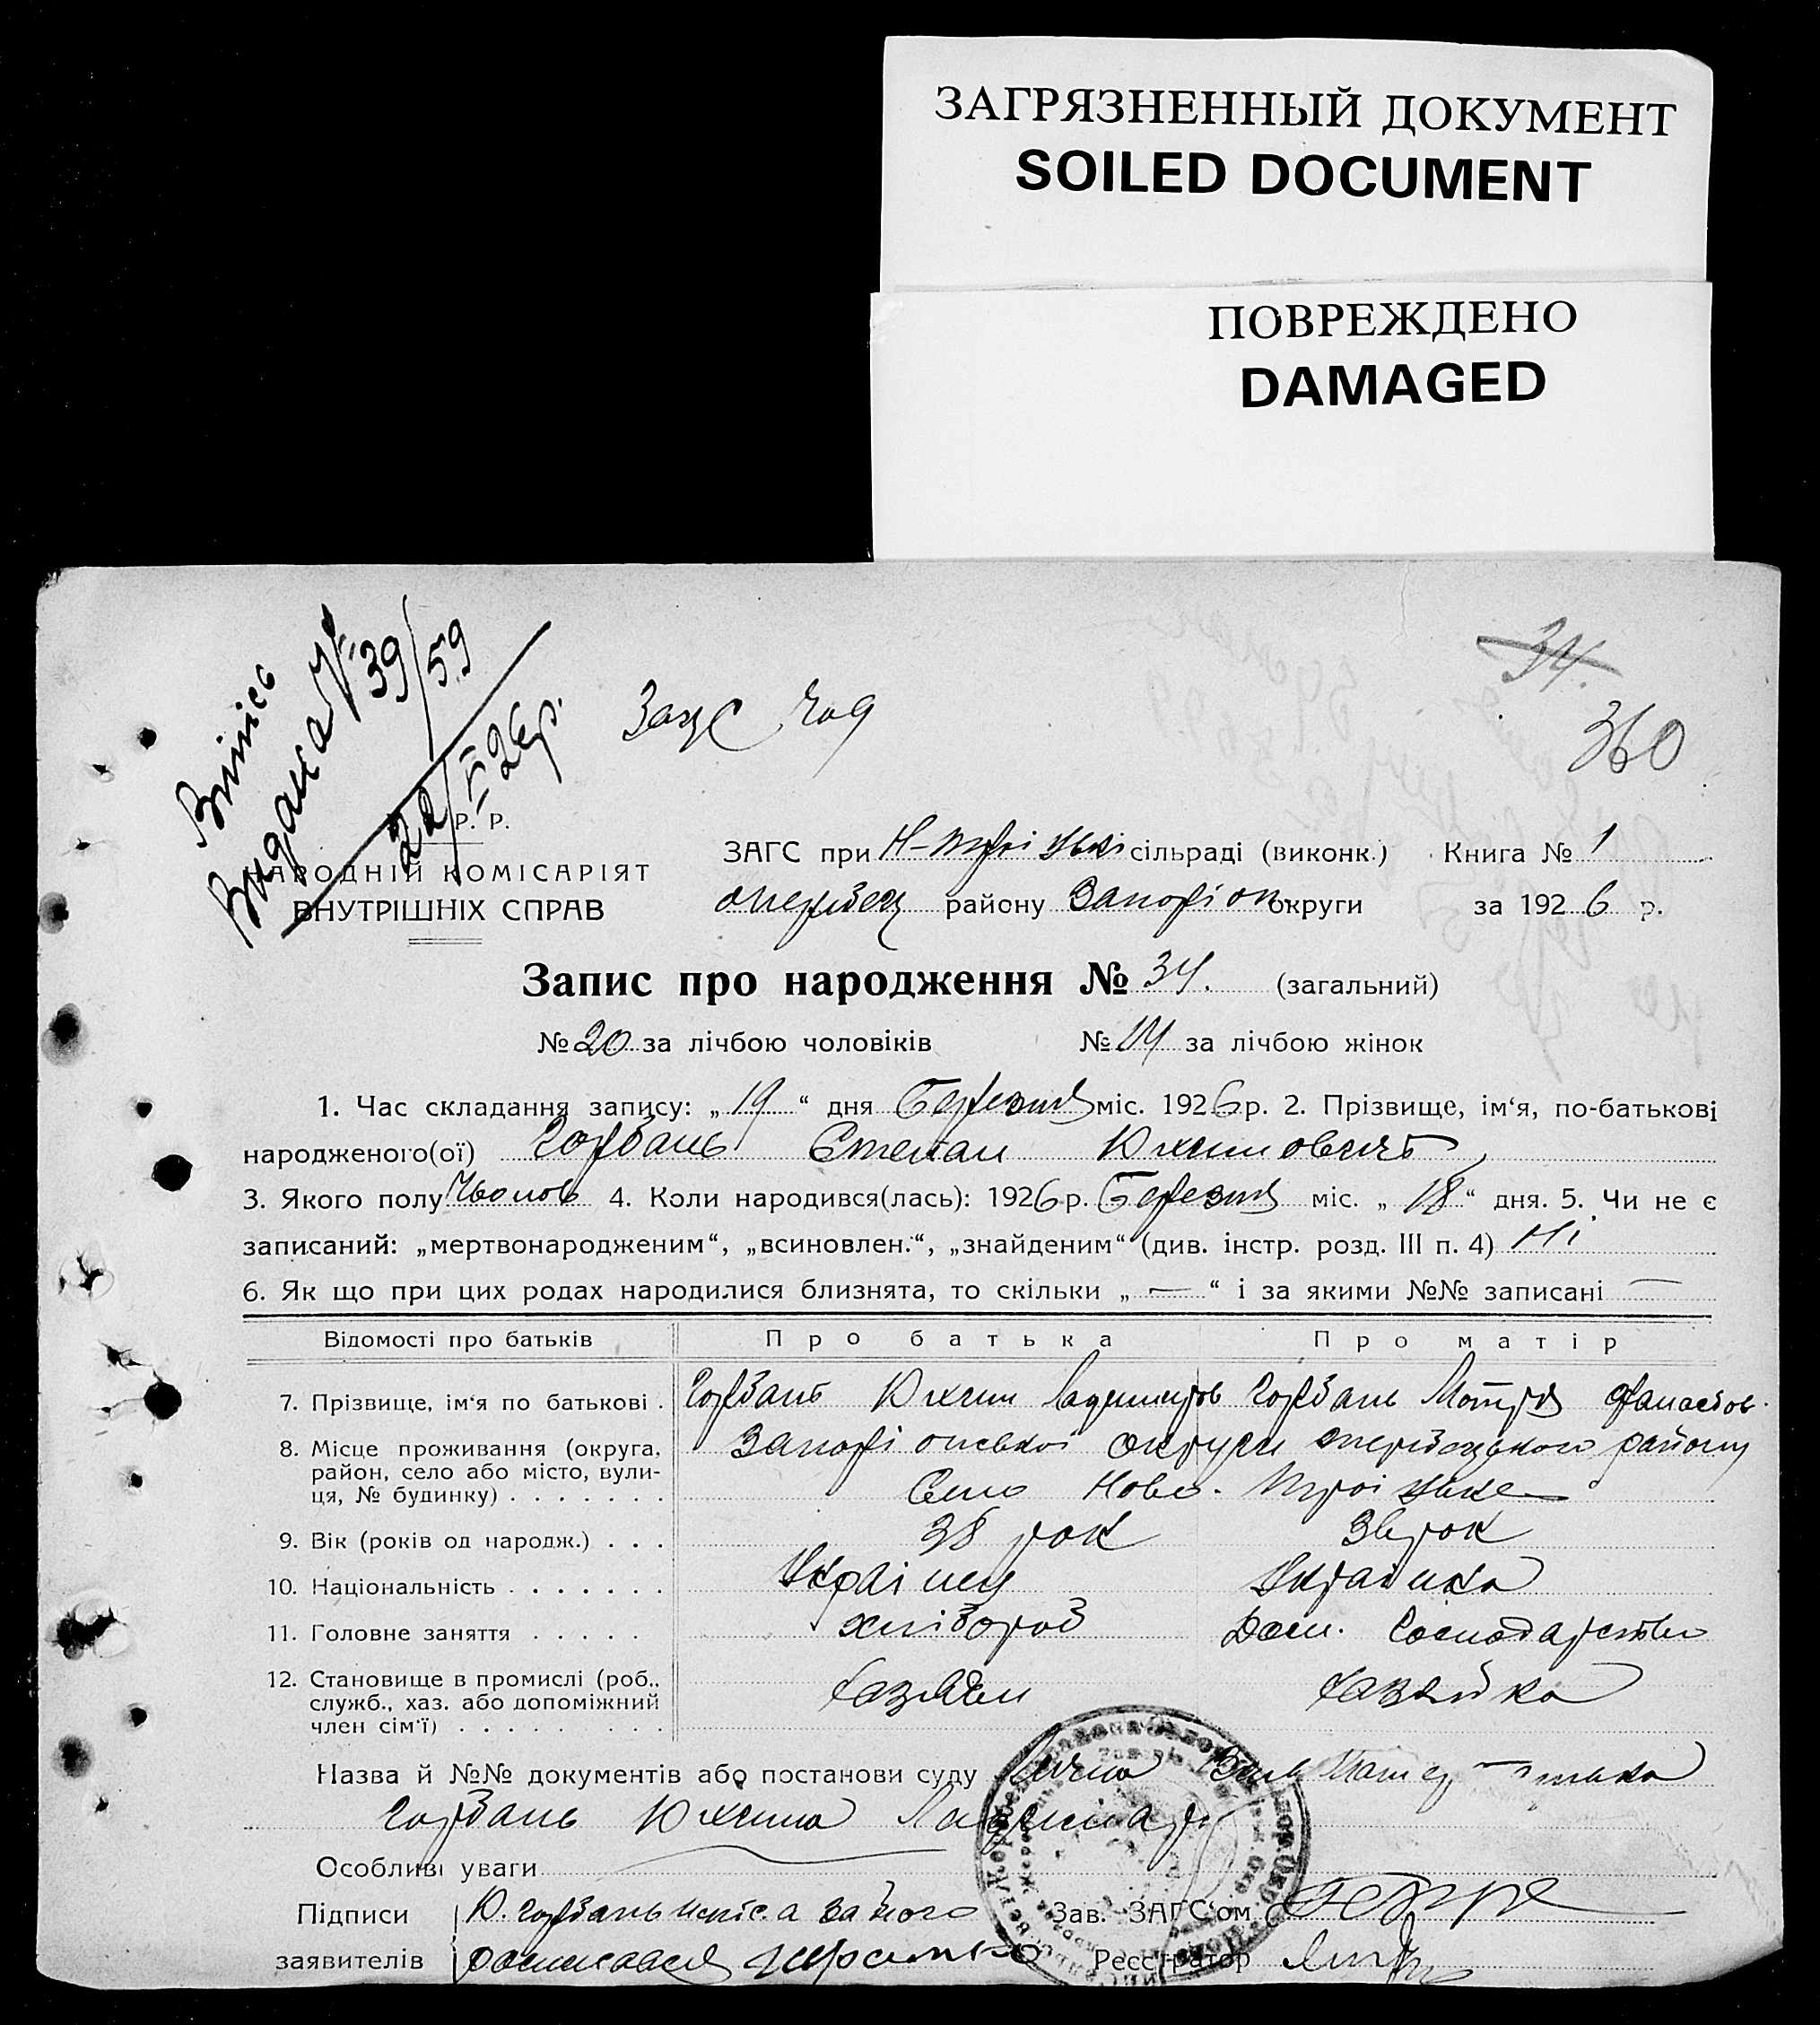 ЗАГРЯЗНЕННЫЙ ДОКУМЕНТ
SOILED DOCUMENT
ПОВРЕЖДЕНО
DAMAGED
34.
360
Витис
Видана № 39/59
22/III 26р.
Р. Р.
НАРОДНІЙ КОМІСАРІЯТ
ВНУТРІШНІХ СПРАВ
ЗАГС при Н-Троїцькі сільраді (виконк.) Книга № 1
району Запоріж округи за 1926 р.
Запис про народження № 34. (загальний)
№ 20 за лічбою чоловіків № 14 за лічбою жінок
1. Час складання запису: „ 19 “ дня Березня міс. 1926 р. 2. Прізвище, ім‘я, по-батькові
народженого(ої) Горбань Степан Юхимович
3. Якого полу Чолов 4. Коли народився(лась): 1926 р. Березня міс. „ 18 “ дня. 5. Чи не є
записаний: „мертвонародженим“, „всиновлен.“, „знайденим“ (див. інстр. розд. III п. 4) Ні
6. Як що при цих родах народилися близнята, то скільки „ — “ і за якими №№ записані —
Відомості про батьків Про батька Про матір
7. Прізвище, ім‘я по батькові . Горбань Юхим Горбань Мотря Фанасов.
8. Місце проживання (округа, округи району
район, село або місто, вули- Село Ново-Троїцьке
ця, № будинку) . . . . . . .
9. Вік (років од народж.) . . . 38 рок 36 рок
10. Національність . . . . . . . Українец Українка
11. Головне заняття . . . . . хлібороб Дом. Господарство
12. Становище в промислі (роб., хазяїн хазяйка
служб., хаз. або допоміжний
член сім‘ї) . . . . . . . .
Назва й №№ документів або постанови суду
Горбань Юхима
Особливі уваги
Підписи Ю. Горбань а за його Зав. ЗАГС‘ом
заявителів росписався Реєстратор